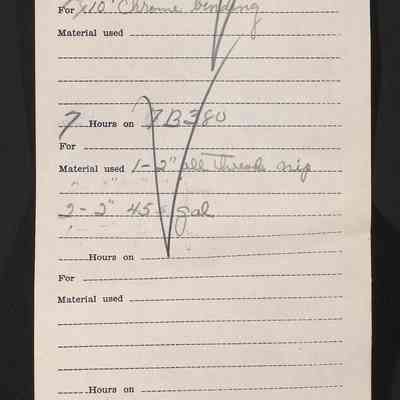 For 7x10' Chrome bending
Material used
7 Hours on 7B380
For
Material used 1-2" all Thread nip
" "
2-2" 45° gal
Hours on
For
Material used
Hours on